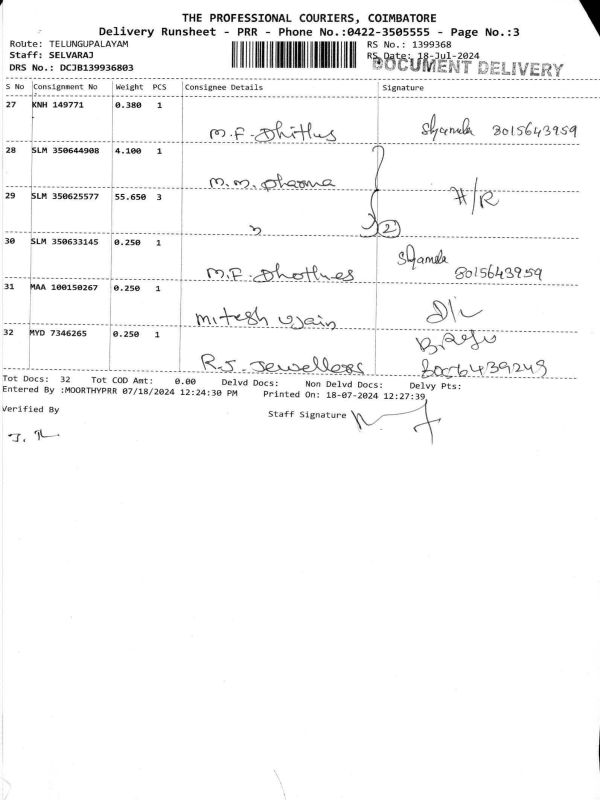 THE PROFESSIONAL COURIERS, COIMBATORE
Delivery Runsheet - PRR - Phone No.:0422-3505555 - Page No.:3
Route: TELUNGUPALAYAM RS No.: 1399368
Staff: SELVARAJ RS Date: 18-Jul-2024
DRS No.: DCJB139936803 DOCUMENT DELIVERY
S No Consignment No Weight PCS Consignee Details Signature
27 KNH 149771 0.380 1
M.F. Shyamala 8015643959
28 SLM 350644908 4.100 1
M.M. Pharma
29 SLM 350625577 55.650 3 H/R
2
30 SLM 350633145 0.250 1 Shyamala
M.F. 8015643959
31 MAA 100150267 0.250 1
Mitesh Jain
32 MYD 7346265 0.250 1
R.J. Jewellers
Tot Docs: 32 Tot COD Amt: 0.00 Delvd Docs: Non Delvd Docs: Delvy Pts:
Entered By :MOORTHYPRR 07/18/2024 12:24:30 PM Printed On: 18-07-2024 12:27:39
Verified By Staff Signature